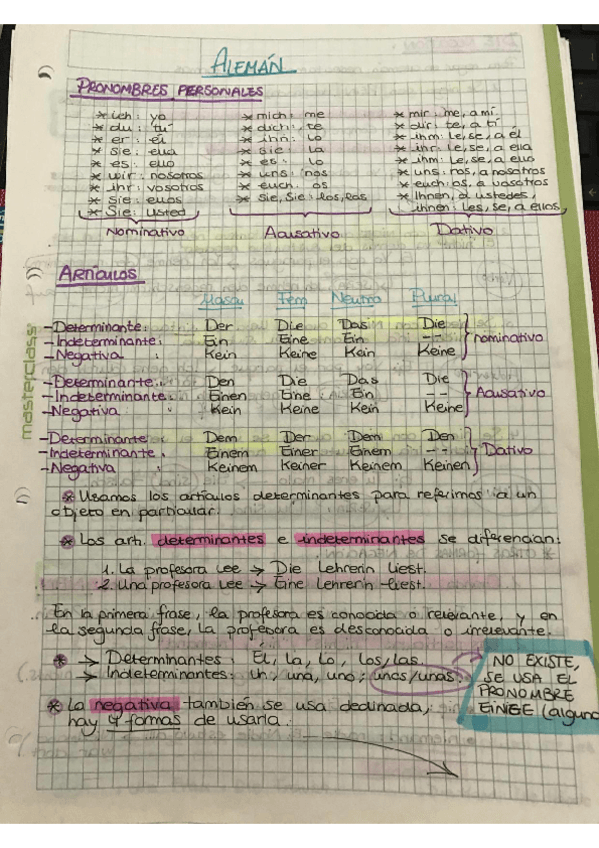 ALEMÁN
PRONOMBRES PERSONALES
* ich: yo
* du: tú
* er: él
* sie: ella
* es: ello
* wir: nosotros
* ihr: vosotros
* Sie: ellos
* Sie: usted
Nominativo
* mich: me
* dich: te
* ihn: lo
* sie: la
* es: lo
* uns: nos
* euch: os
* sie, Sie: los, las
Acusativo
* mir: me, a mí
* dir: te, a ti
* ihm: le, se, a él
* ihr: le, se, a ella
* ihm: le, se, a ello
* uns: nos, a nosotros
* euch: os, a vosotros
* Ihnen, a ustedes,
ihnen: les, se, a ellos
Dativo
ARTÍCULOS
Mascu Fem Neutro Plural
-Determinante: Der Die Das Die
-Indeterminante: Ein Eine Ein --
-Negativa: Kein Keine Kein Keine
nominativo
-Determinante: Den Die Das Die
-Indeterminante: Einen Eine Ein --
-Negativa: Kein Keine Kein Keine
Acusativo
-Determinante: Dem Der Dem Den
-Indeterminante: Einem Einer Einem --
-Negativa Keinem Keiner Keinem Keinen
Dativo
masterclass
* Usamos los artículos determinantes para referirnos a un
objeto en particular.
* Los art. determinantes e indeterminantes se diferencian:
1. La profesora lee → Die Lehrerin liest.
2. Una profesora lee → Eine Lehrerin liest.
En la primera frase, la profesora es conocida o relevante, y en
la segunda frase, la profesora es desconocida o irrelevante.
* → Determinantes: Él, la, lo, los/las.
→ Indeterminantes: un, una, uno; unos/unas.
NO EXISTE,
SE USA EL
PRONOMBRE
EINIGE (alguno
* La negativa también se usa declinada,
hay 4 formas de usarla.